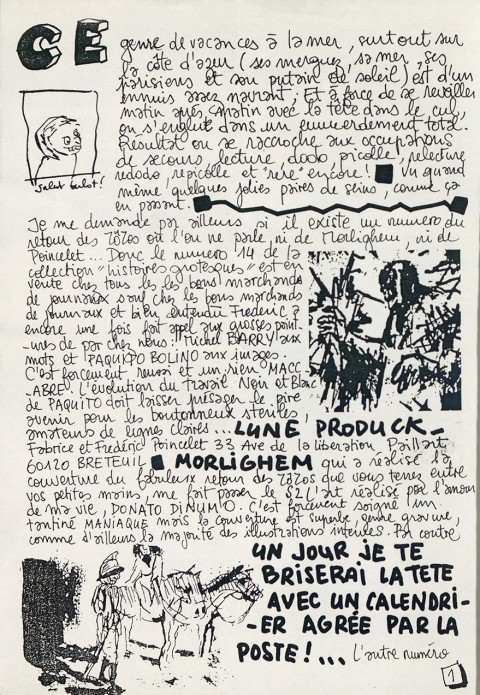 CE
genre de vacances à la mer, surtout sur
la côte d'azur (ses merguez, sa mer, ses
parisiens et son putain de soleil) est d'un
ennuis assez navrant; Et à force de se reveiller
matin après matin avec la tête dans le cul,
on s'englut dans un emmerdement total.
Résultat on se raccroche aux occupations
de secours, lecture, dodo, picolle, relecture
redodo, repicolle et "rere" encore! Vu quand
même quelques jolies paires de seins, comme ça
en passant.
salut
Je me demande par ailleurs si il existe un numero du
retour des Zâzos où l'on ne parle, ni de Morlighem, ni de
Poincelet... Donc le numero 14 de la
collection "histoires grotesques" est en
vente chez tous les les bons marchands
de journaux sont chez les bons marchands
de journaux et bien entendu Frederic a
encore une fois fait appel aux grosses point-
-ures de par chez nous: Michel BARRY aux
mots et PAQUITO BOLINO aux images.
C'est forcement reussi et un rien MACC-
ABRE. L'évolution du travail Noir et Blanc
de PAQUITO doit laisser présager le pire
avenir pour les boutonneux steriles,
amateurs de lignes claires... LUNE PRODUCK_
Fabrice et Frédéric Poincelet 33 Ave de la liberation Paillart
60120 BRETEUIL MORLIGHEM qui a réalisé la
couverture du fabuleux retour des Zâzos que vous tenez entre
vos petites mains, me fait passer le S2L'art réalisé par l'amour
de ma vie, DONATO DiNUNZIO. C'est forcément soigné un
tantiné MANIAQUE mais la couverture est superbe, genre gravure,
comme d'ailleurs la majorité des illustrations interieures. Par contre
UN JOUR JE TE
BRISERAI LA TETE
AVEC UN CALENDRI-
-ER AGRÉE PAR LA
POSTE!... L'autre numéro
1